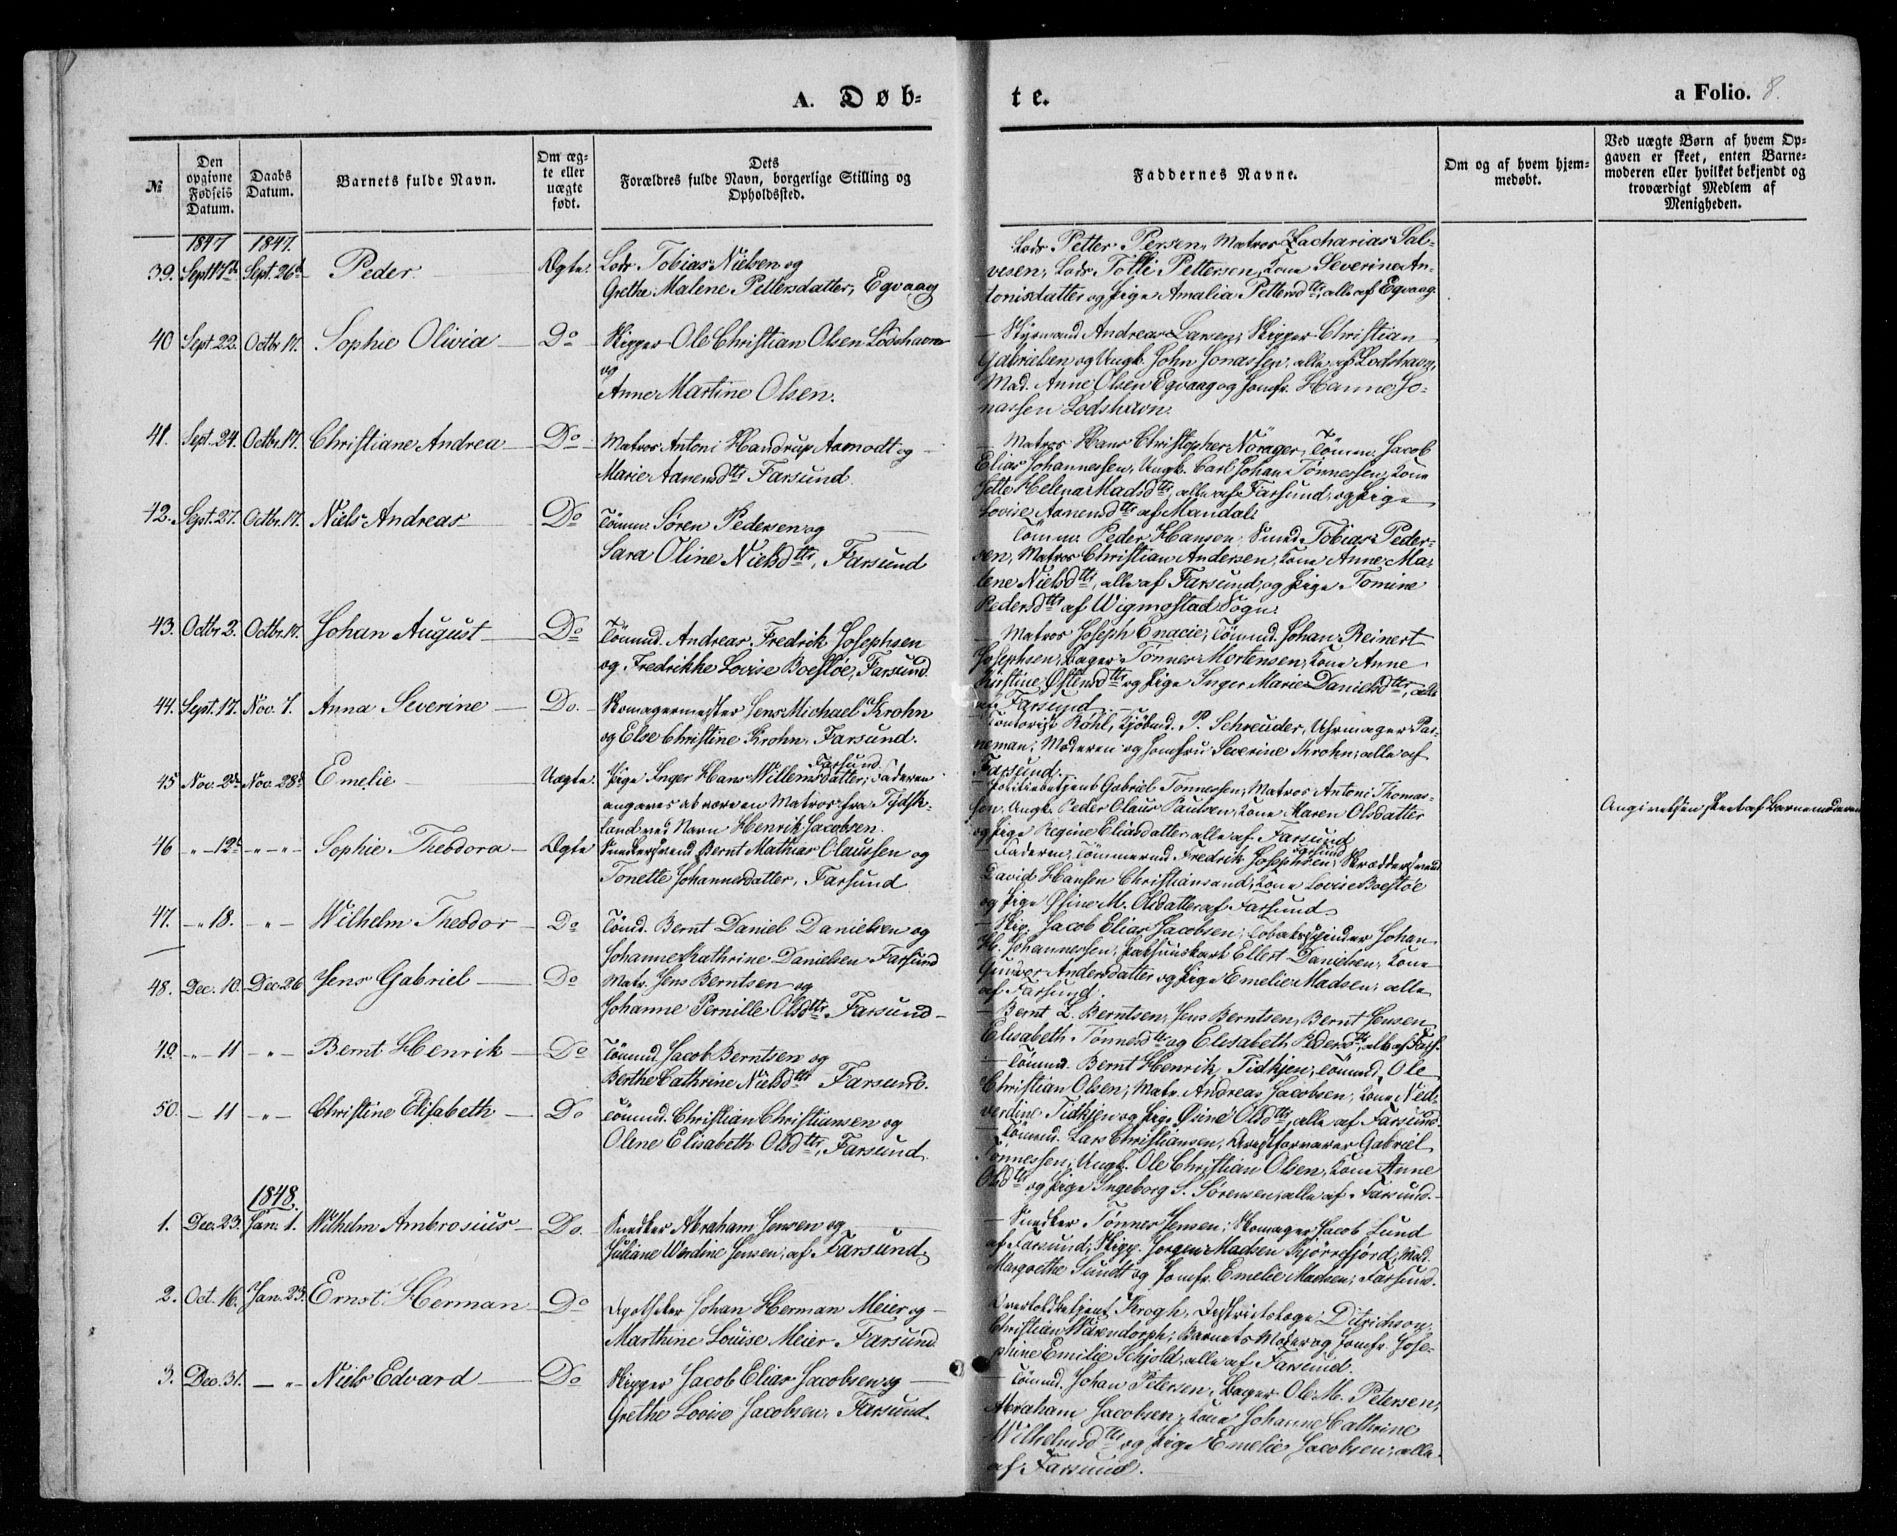 A. Døb-
te.
a Folio. 8.
№
Den opgivne Fødsels Datum.
Daabs Datum.
Barnets fulde Navn.
Om ægte eller uægte født.
Dets Forældres fulde Navn, borgerlige Stilling og Opholdssted.
Faddernes Navne.
Om og af hvem hjemmedøbt.
Ved uægte Børn af hvem Opgaven er skeet, enten Barnemoderen eller hvilket bekjendt og troværdigt Medlem af Menigheden.
1847 1847.
39. Sept 17d Sept. 26d Peder. Ægte. Lods Tobias Nielsen og
Grethe Malene Pettersdatter, Egvaag
Lods Petter Persen, Matros Zacharias Sal-
vesen, Lods Tolli Pettersen, Kone Severine An-
tonisdatter og Pige Amalia Pettersdtr, alle af Egvaag.
40 Sept. 22. Octbr 17. Sophie Olivia Do Skipper Ole Christian Olsen Lodshavn
og
Anne Martine Olsen.
Styrmand Andreas Larsen, Skipper Christian
Gabrielsen og Ungk. John Jonassen, alle af Lodshavn,
Mad. Anne Olsen Egvaag og Jomfr. Hanne Jo-
nassen Lodshavn.
41. Sept. 24. Octbr. 17. Christiane Andrea Do Matros Antoni Handrup Aamodt og
Marie Aanensdtr Farsund.
Matros Hans Christopher Nörager, Tömm. Jacob
Elias Johannessen, Ungk. Carl Johan Tönnessen, Kone
Jette Helena Madsdtr, alle af Farsund, og Pige
Lovise Aanensdtr af Mandal.
42. Sept. 27. Octbr. 17. Niels Andreas Do Tömm. Søren Pedersen og
Sara Oline Nielsdtr, Farsund
Tömm. Peder Hansen, Smed Tobias Peder-
sen, Matros Christian Andersen, Kone Anne Ma-
lene Nielsdtr, alle af Farsund, og Pige Tomine
Pedersdtr af Wigmostad Sogn.
43. Octbr 2. Octbr. 17. Johan August Do Tömmd. Andreas Fredrik Josephsen
og Fredrikke Lovise Boeslöe, Farsund.
Matros Joseph Enacie, Tömmd. Johan Reinert
Josephsen, Bager Tönnes Mortensen, Kone Anne
Kirstine Östensdtr og Pige Inger Marie Danielsdtr, alle
af Farsund.
44. Sept. 17. Nov. 7. Anna Severine Do. Skomagermester Jens Michael Krohn
og Else Christine Krohn, Farsund.
Contorist Röhl, Kjöbmd. P. Schreuder, Uhrmager Par-
neman, Moderen og Jomfru Severine Krohn, alle af
Farsund.
45 Nov. 2d Nov. 28d Emelie Uægte. Pige Inger Hans Willemsdatter, Farsund; Faderen
angaves at være en Matros fra Tydsk-
land ved Navn Henrik Jacobsen.
Politiebetjent Gabriel Tönnessen, Matros Antoni Thomas-
sen, Ungk. Peder Olaus Paulsen, Kone Maren Olsdatter
og Pige Regine Eliasdatter, alle af Farsund
Angivelsen skeet af Barnemoderen
46 " 12d " " Sophie Theodora Ægte Snedkersvend Bernt Mathias Olaussen og
Tonette Johannesdatter, Farsund
Faderen, Tömmermd Fredrik Josephsen, Farsund, Skræddersvend
David Hansen Christiansand, Kone Lovise Boeslöe
og Pige Ösine M. Olsdatter af Farsund
47. " 18. " Wilhelm Theodor Do Tömd. Bernt Daniel Danielsen og
Johanne Kathrine Danielsen Farsund
Skip. Jacob Elias Jacobsen, Tobakspinder Johan
H. Johannessen, Ellert Danielsen, Kone
Gunvor Andersdatter og Pige Emelie Madsen, alle
af Farsund.
48. Dec. 10. Dec. 26 Jens Gabriel Do Matr. Jens Berntsen og
Johanne Pernille Olsdtr. Farsund
Bernt L. Berntsen, Jens Berntsen, Bernt Jensen
Elisabeth Tönnesdtr og Elisabeth Pedersdtr, alle af Fars.
49. " 11 " Bernt Henrik Do Tömmd. Jacob Berntsen og
Berthe Cathrine Nielsdtr Farsund.
Tömmd. Bernt Henrik Tidkjen, Tömmd. Ole
Christian Olsen, Matr. Andreas Jacobsen, Kone Ned-
verdine Tidkjen og Pige Ösine Olsdtr, alle af Farsund.
50. 11 " Christine Elisabeth Do Tömmd. Christian Christiansen og
Olene Elisabeth Olsdtr, Farsund.
Tömmd. Lars Christiansen, Arrestforvarer Gabriel
Tönnessen, Ungk. Ole Christian Olsen, Kone Anne
Olsdtr og Pige Ingeborg S. Sörensen, alle af Farsund.
1848.
1. Dec. 23. Jan. 1. Wilhelm Ambrosius Do. Snedker Abraham Jensen og
Juliane Werdine Jensen, af Farsund.
Snedker Tönnes Jensen, Skomager Jacob Lund
af Farsund, Skipp. Jörgen Madsen Kjörrefjord, Mad.
Margrethe Sundt og Jomfr. Emelie Madsen, Farsund.
2. Oct. 16. Jan. 23. Ernst Herman Do Apotheker Johan Herman Meier og
Marthine Louise Meier. Farsund.
Overtoldbetjent Krogh, Distriktslæge Ditrichson,
Christian Warendorph, Barnets Moder og Jomfr. Jose-
phine Emilie Schjold, alle af Farsund.
3. Dec. 31. " Niels Edvard Do Skipper Jacob Elias Jacobsen og
Grethe Lovise Jacobsen, Farsund.
Tömmd. Johan Petersen, Bager Ole M. Petersen,
Abraham Jacobsen, Kone Johanne Cathrine
Wilhelmsdtr og Pige Emelie Jacobsen, alle
af Farsund.